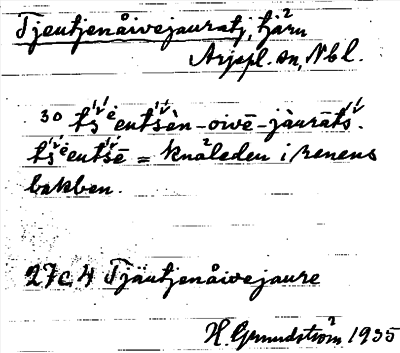 Tjeutjenåivejauratj, tjärn
Arjepl. sn, Nbl.
30 tś́ėeutśèn-oivē-jàurātś.
tś́ėeutśē = knäleden i renens
bakben.
27c4 Tjäutjenåivejaure
H. Grundström 1935